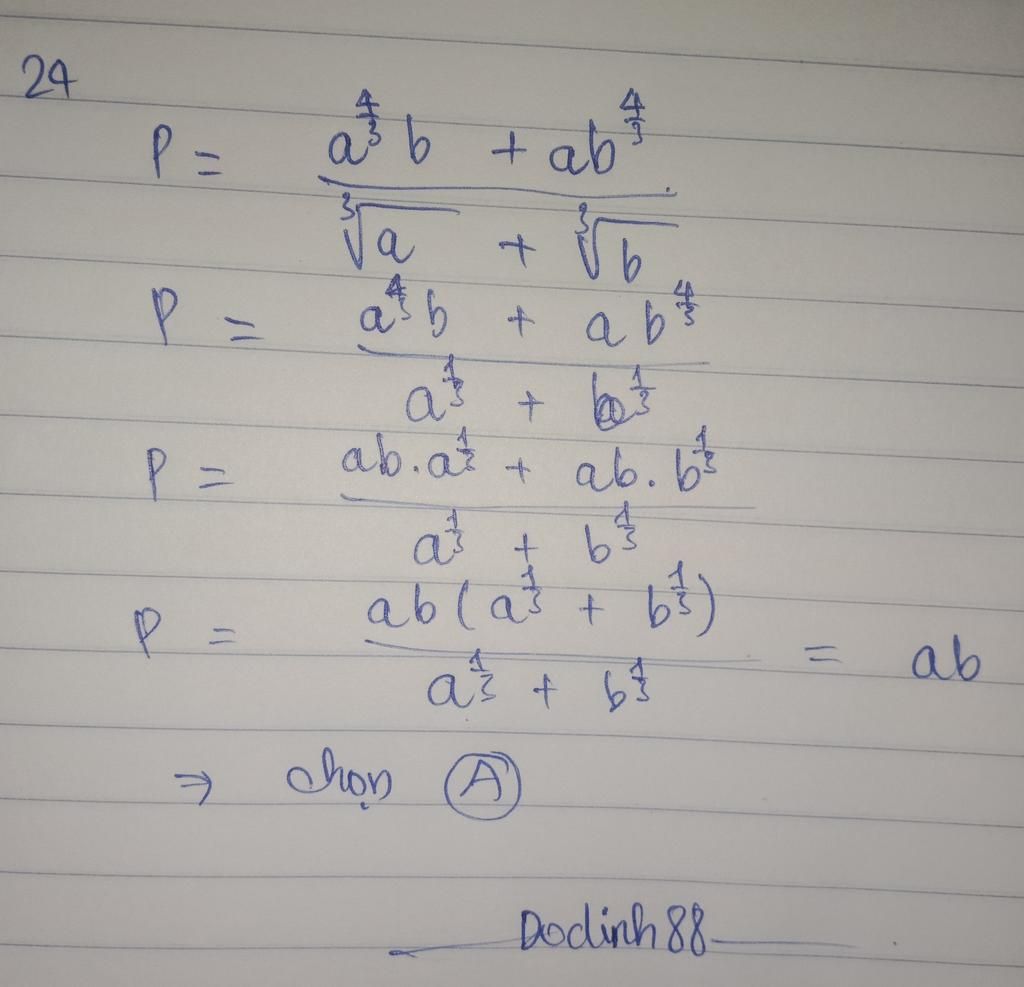 24
P = \frac{a^{\frac{4}{3}}b + ab^{\frac{4}{3}}}{\sqrt[3]{a} + \sqrt[3]{b}}
P = \frac{a^{\frac{4}{3}}b + ab^{\frac{4}{3}}}{a^{\frac{1}{3}} + b^{\frac{1}{3}}}
P = \frac{ab.a^{\frac{1}{3}} + ab.b^{\frac{1}{3}}}{a^{\frac{1}{3}} + b^{\frac{1}{3}}}
P = \frac{ab(a^{\frac{1}{3}} + b^{\frac{1}{3}})}{a^{\frac{1}{3}} + b^{\frac{1}{3}}} = ab
⇒ chọn A
Dodinh88